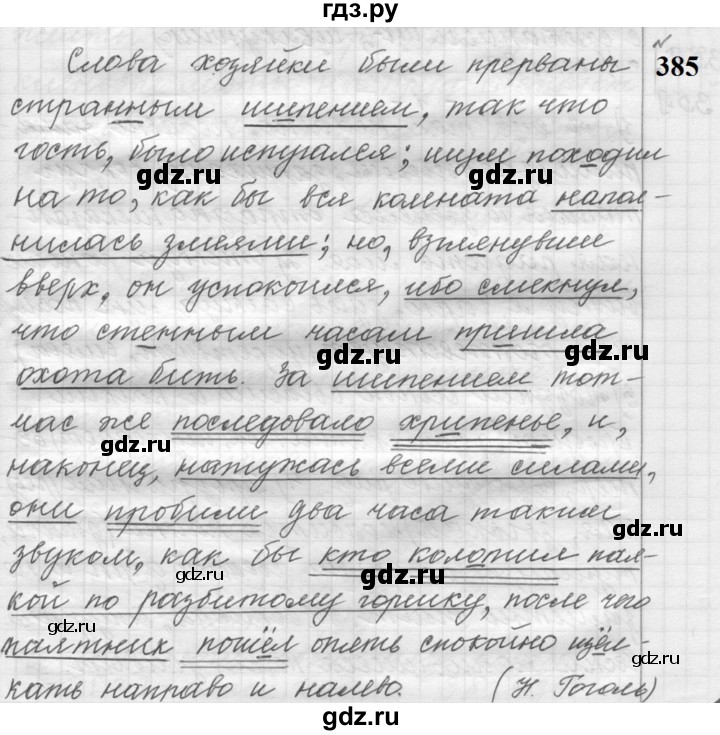 гдз.ру
№
385
Слова хозяйки были прерваны
странным шипением, так что
гость, было испугался; шум походил
gdz.ru gdz.ru
на то, как бы вся комната напол-
нилась змеями; но, взглянувши
gdz.ru
вверх, он успокоился, ибо смекнул,
что стенным часам пришла
gdz.ru gdz.ru
охота бить. За шипением тот-
час же последовало хрипенье, и,
gdz.ru
наконец, натужась всеми силами,
они пробили два часа таким
gdz.ru
звуком, как бы кто колотил пал-
gdz.ru gdz.ru
кой по разбитому горшку, после чего
gdz.ru
маятник пошёл опять спокойно щёл-
gdz.ru
кать направо и налево. (Н. Гоголь)
gdz.ru